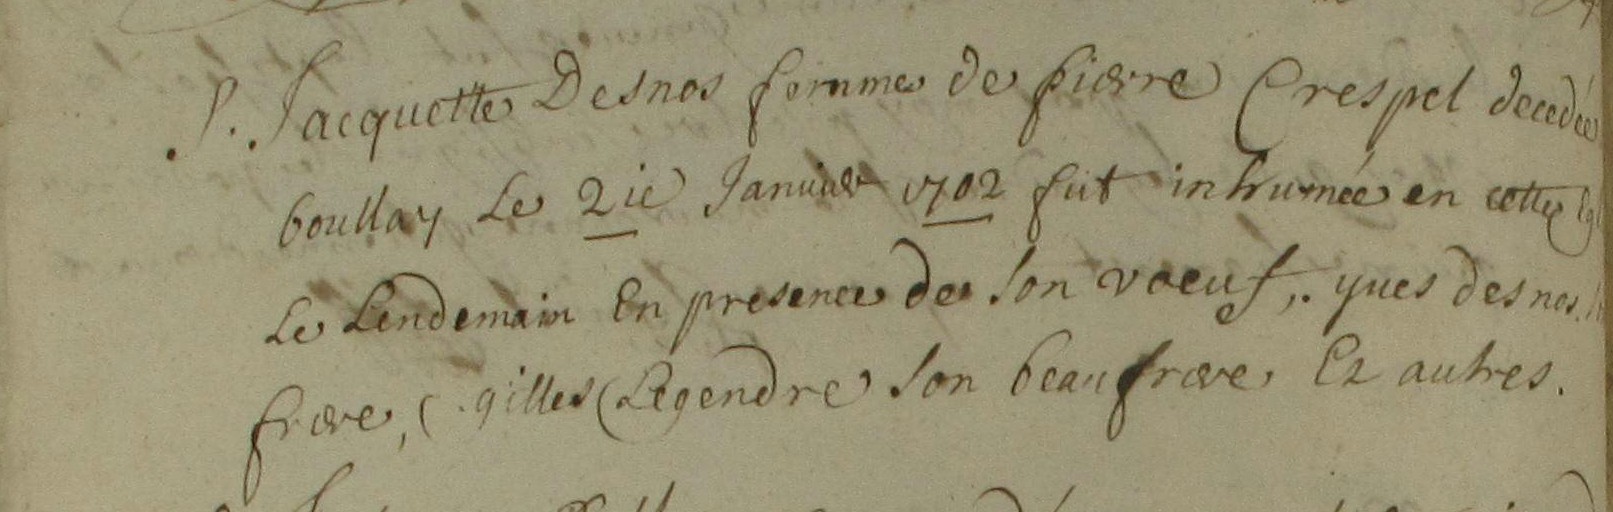 P. Jacquette Desnos femme de pierre Crespel decedée
boullay Le 2ie Januier 1702 fut inhumée en cette
Le Lendemain En presence de son voeuf, yues desnos.
frere, gilles Legendre son beaufrere Et autres.